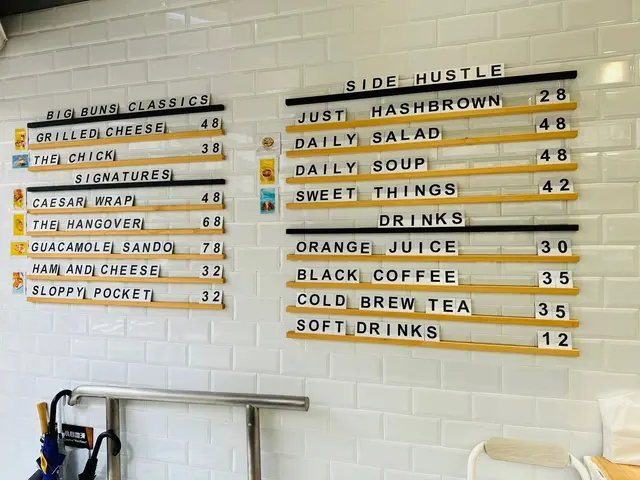 BIG BUNS CLASSICS
GRILLED CHEESE 48
THE CHICK 38
SIGNATURES
CAESAR WRAP 48
THE HANGOVER 68
GUACAMOLE SANDO 78
HAM AND CHEESE 32
SLOPPY POCKET 32
SIDE HUSTLE
JUST HASHBROWN 28
DAILY SALAD 48
DAILY SOUP 48
SWEET THINGS 42
DRINKS
ORANGE JUICE 30
BLACK COFFEE 35
COLD BREW TEA 35
SOFT DRINKS 12